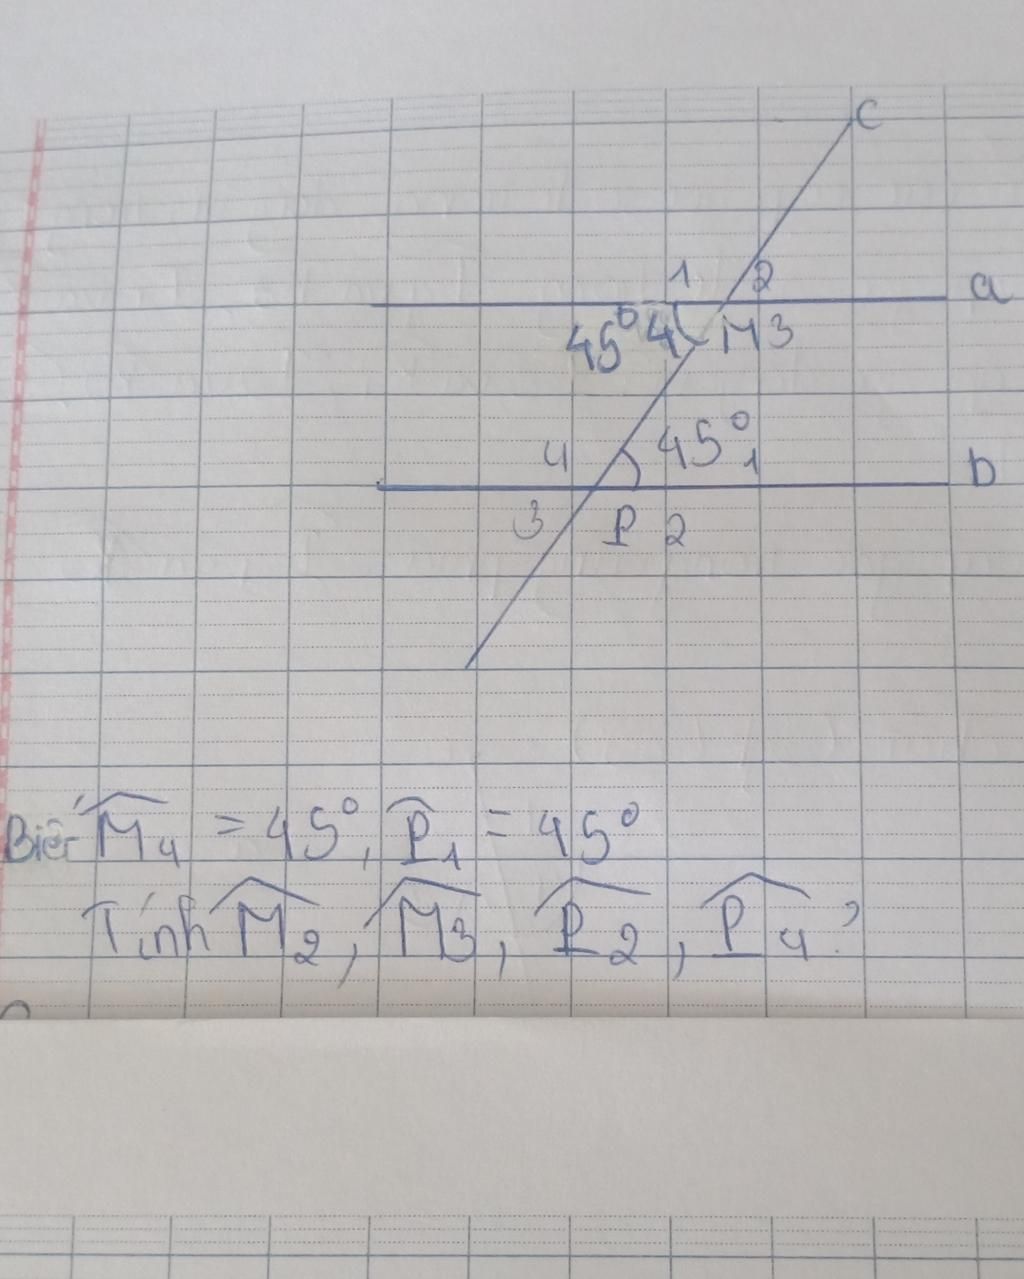 c
1 2 a
45° 4 M 3
4 45° 1 b
3 P 2
Biết M̂₄ = 45°, P̂₁ = 45°
Tính M̂₂, M̂₃, P̂₂, P̂₄?